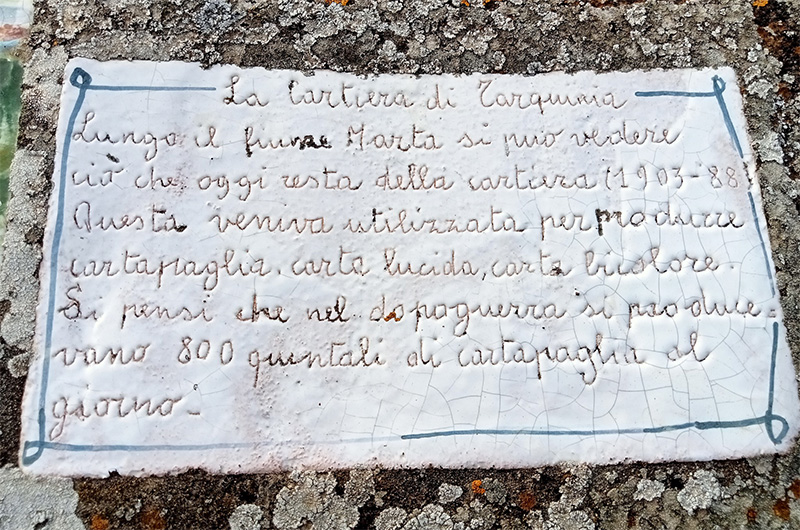 La Cartiera di Tarquinia
Lungo il fiume Marta si può vedere
ciò che oggi resta della cartiera (1903-88)
Questa veniva utilizzata per produrre
cartapaglia, carta lucida, carta bicolore.
Si pensi che nel dopoguerra si produce-
vano 800 quintali di cartapaglia al
giorno.